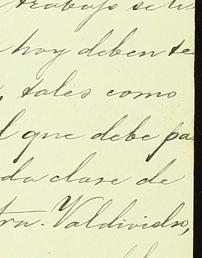 trabajo se h
hoy deben te
, tales como
l que debe pa
da clase de
tra. Valdivielso,